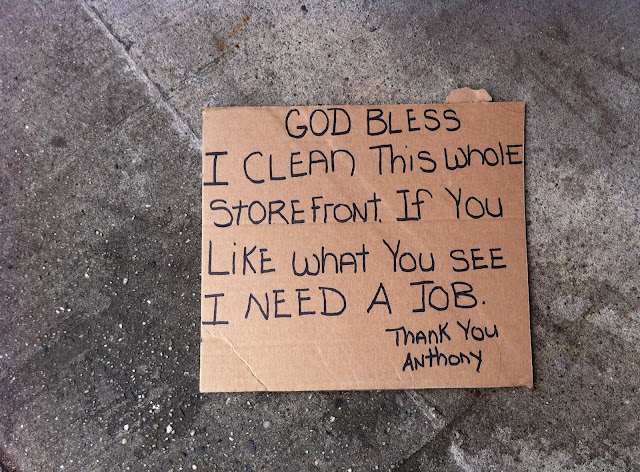 GOD BLESS
I CLEAN This whole
STOREfront. If You
Like what You SEE
I NEED A JOB.
Thank You
Anthony